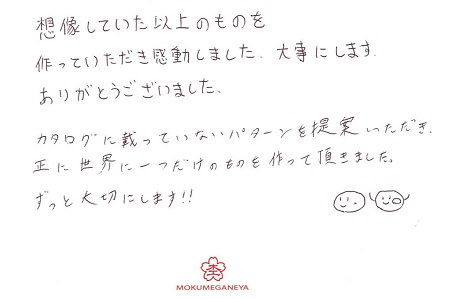 想像していた以上のものを
作っていただき感動しました．大事にします．
ありがとうございました．
カタログに載っていないパターンを提案いただき．
正に世界に一つだけのものを作って頂きました。
ずっと大切にします!!
杢
MOKUMEGANEYA